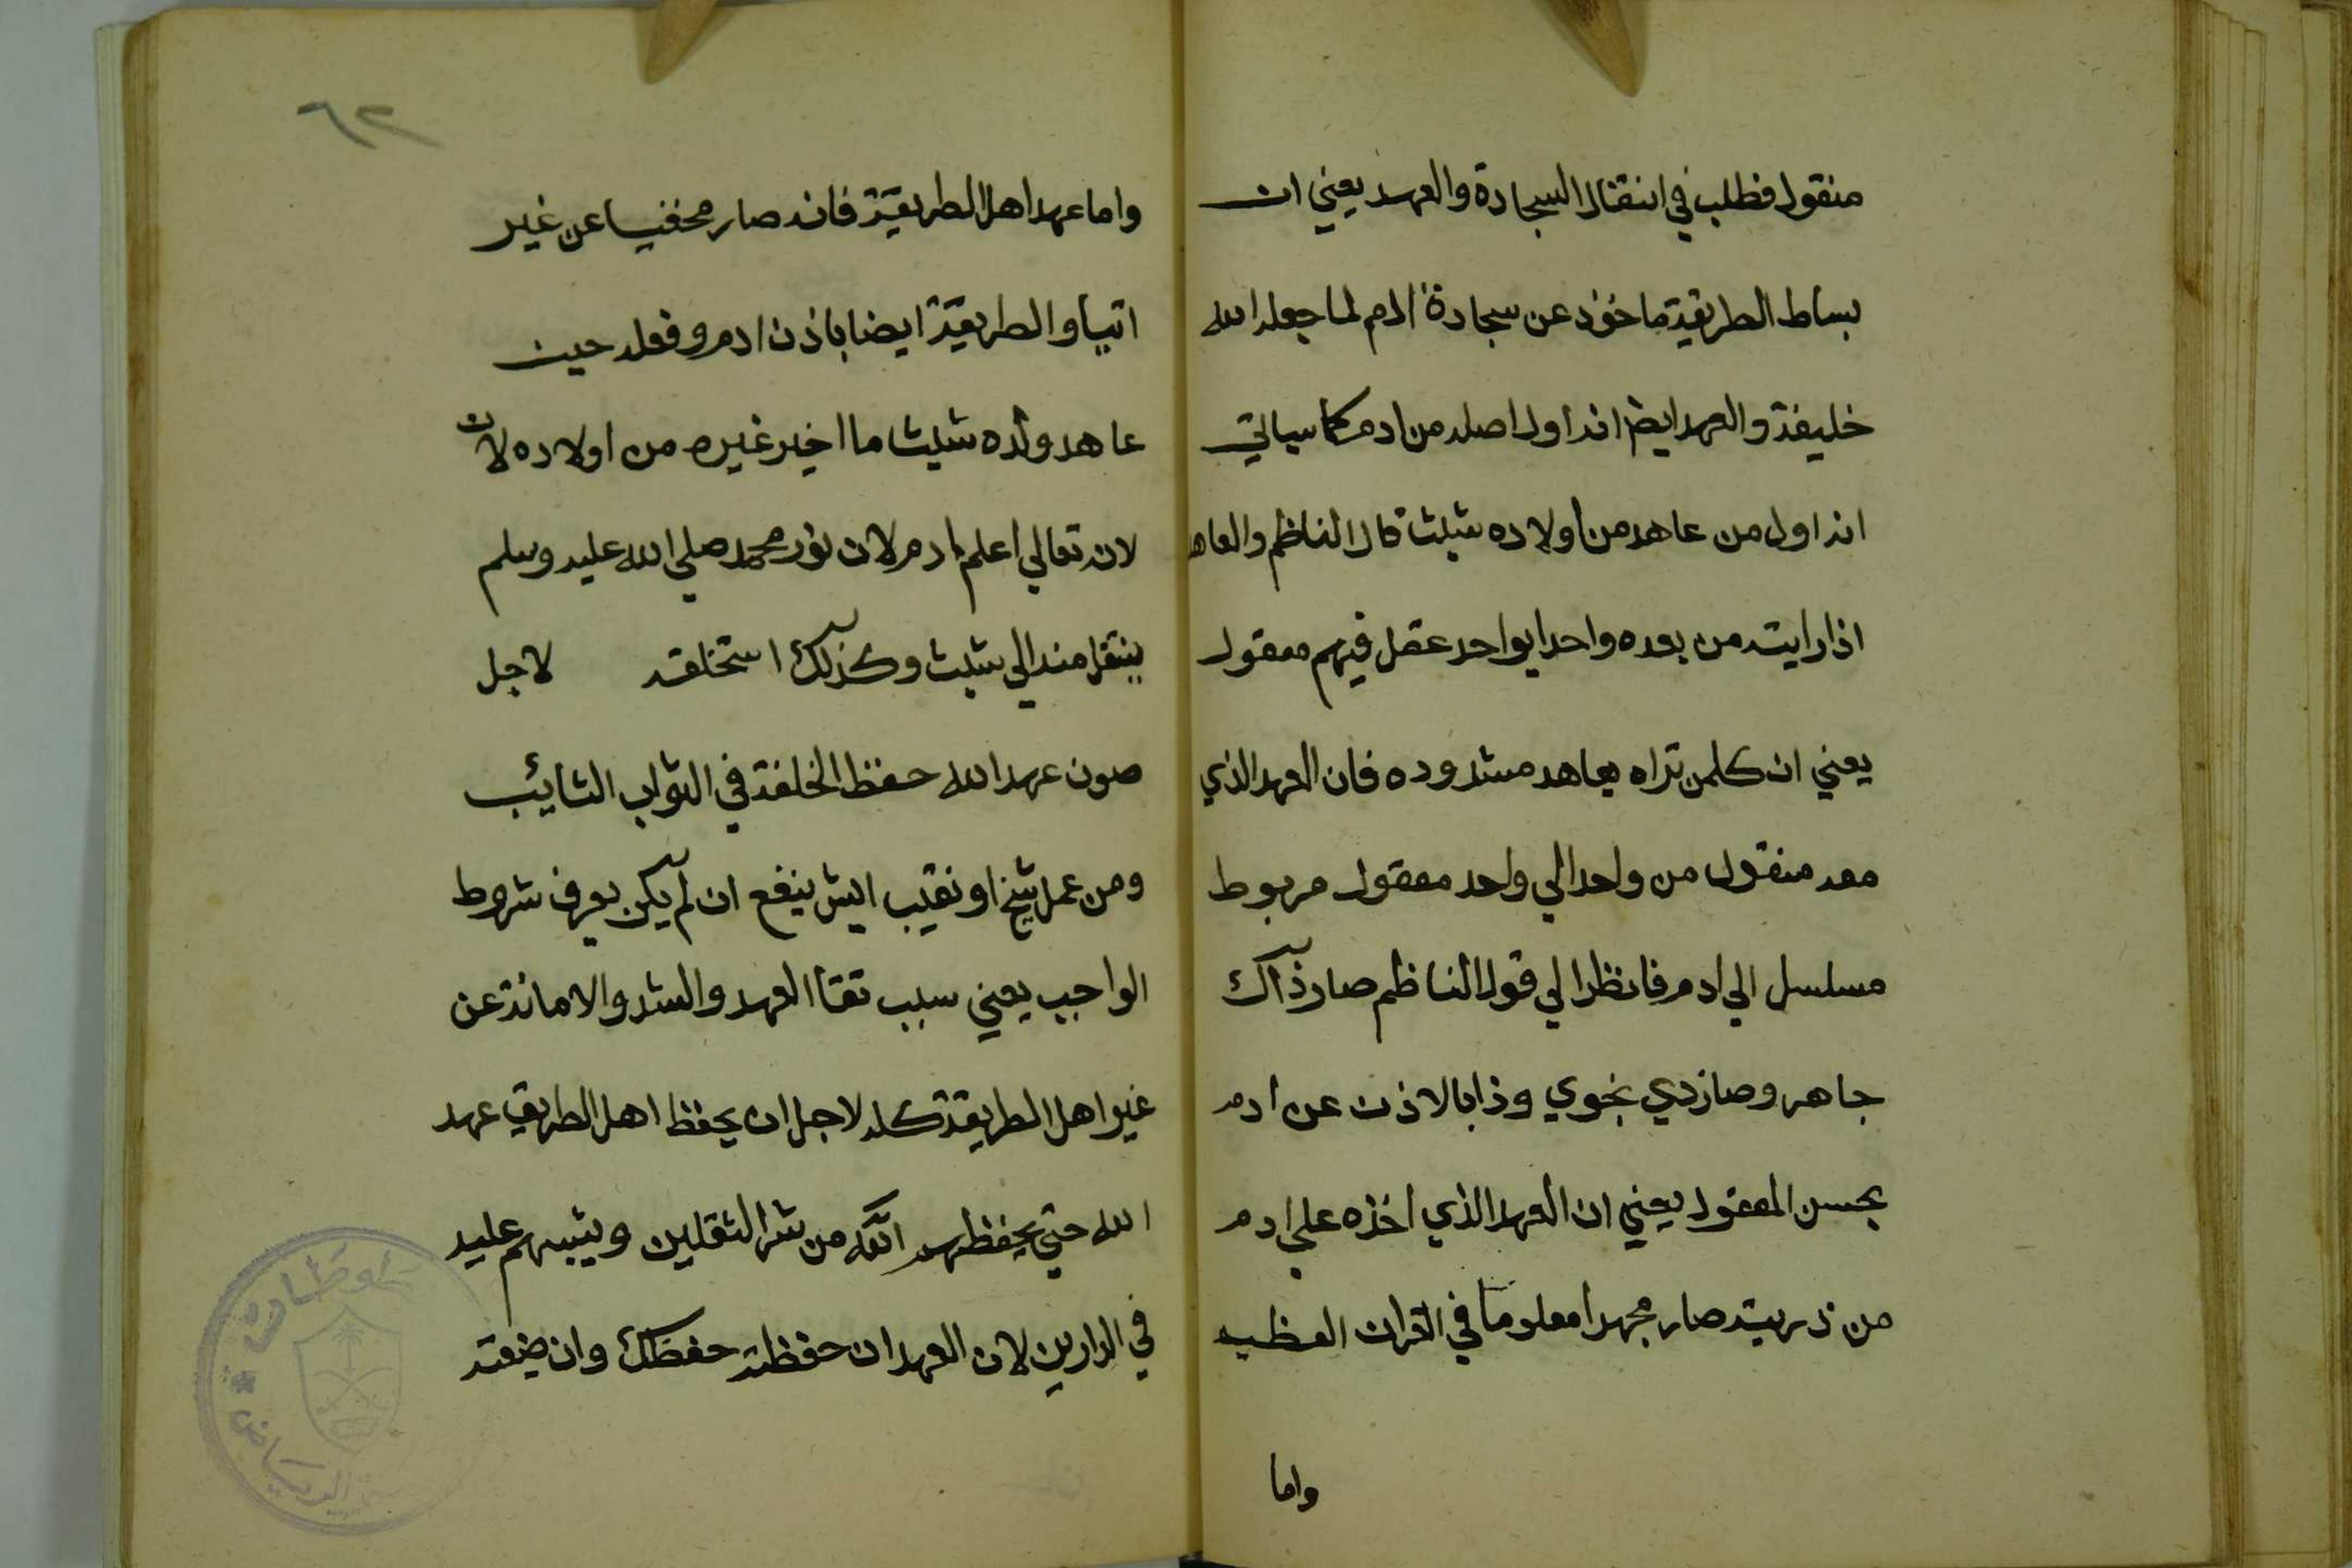 منقول فطلب في انتقال السجادة والعهد يعني ان
بساط الطريقة ماخوذ عن سجادة ادم لما جعله الله
خليفة والعهد ايضا انه اول اصله من ادم كما سياتي
انه اول من عاهد من اولاده شيث قال الناظم والعاهد
اذا رايته من بعده واحدا بواحد عقل فيهم معقول
يعني ان كلمن تراه يعاهد مشدوده فان العهد الذي
معه منقول من واحد الي واحد معقول مربوط
مسلسل الي ادم فانظر الي قول الناظم صار ذاك
جاهر وصار ذي نجوي وذا بالاذن عن ادم
بحسن المعقول يعني ان العهد الذي اخذه علي ادم
من ذريته صار مجهرا معلوما في القران العظيم
واما
٦٢
واما عهد اهل الطريقة فانه صار مخفيا عن غير
اتباو الطريقة ايضا باذن ادم وفعله حين
عاهد ولده شيث ما اخبر غيره من اولاده لان
لانه تعالي اعلم ادم لان نور محمد صلي الله عليه وسلم
ينتقل منه الي شيث وكذلك استخلفه لاجل
صون عهد الله حفظ الخلفة في الثواب الثايب
ومن عمل شيخ او نقيب ايش ينفع ان لم يكن يعرف شروط
الواجب يعني سبب العهد والشد والامانة عن
غير اهل الطريقة كله لاجل ان يحفظ اهل الطريق عهد
الله حتي يحفظهم الله من شر الثقلين ويثيبهم عليه
في الدارين لان العهد ان حفظته حفظك وان ضيعته
الرياض